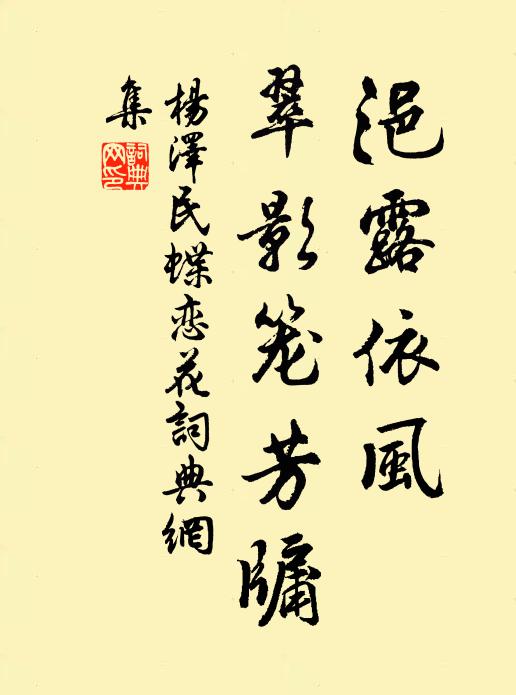 浥露依風
翠影笼芳牖
楊澤民蝶恋花詞典網
集
詞典網印